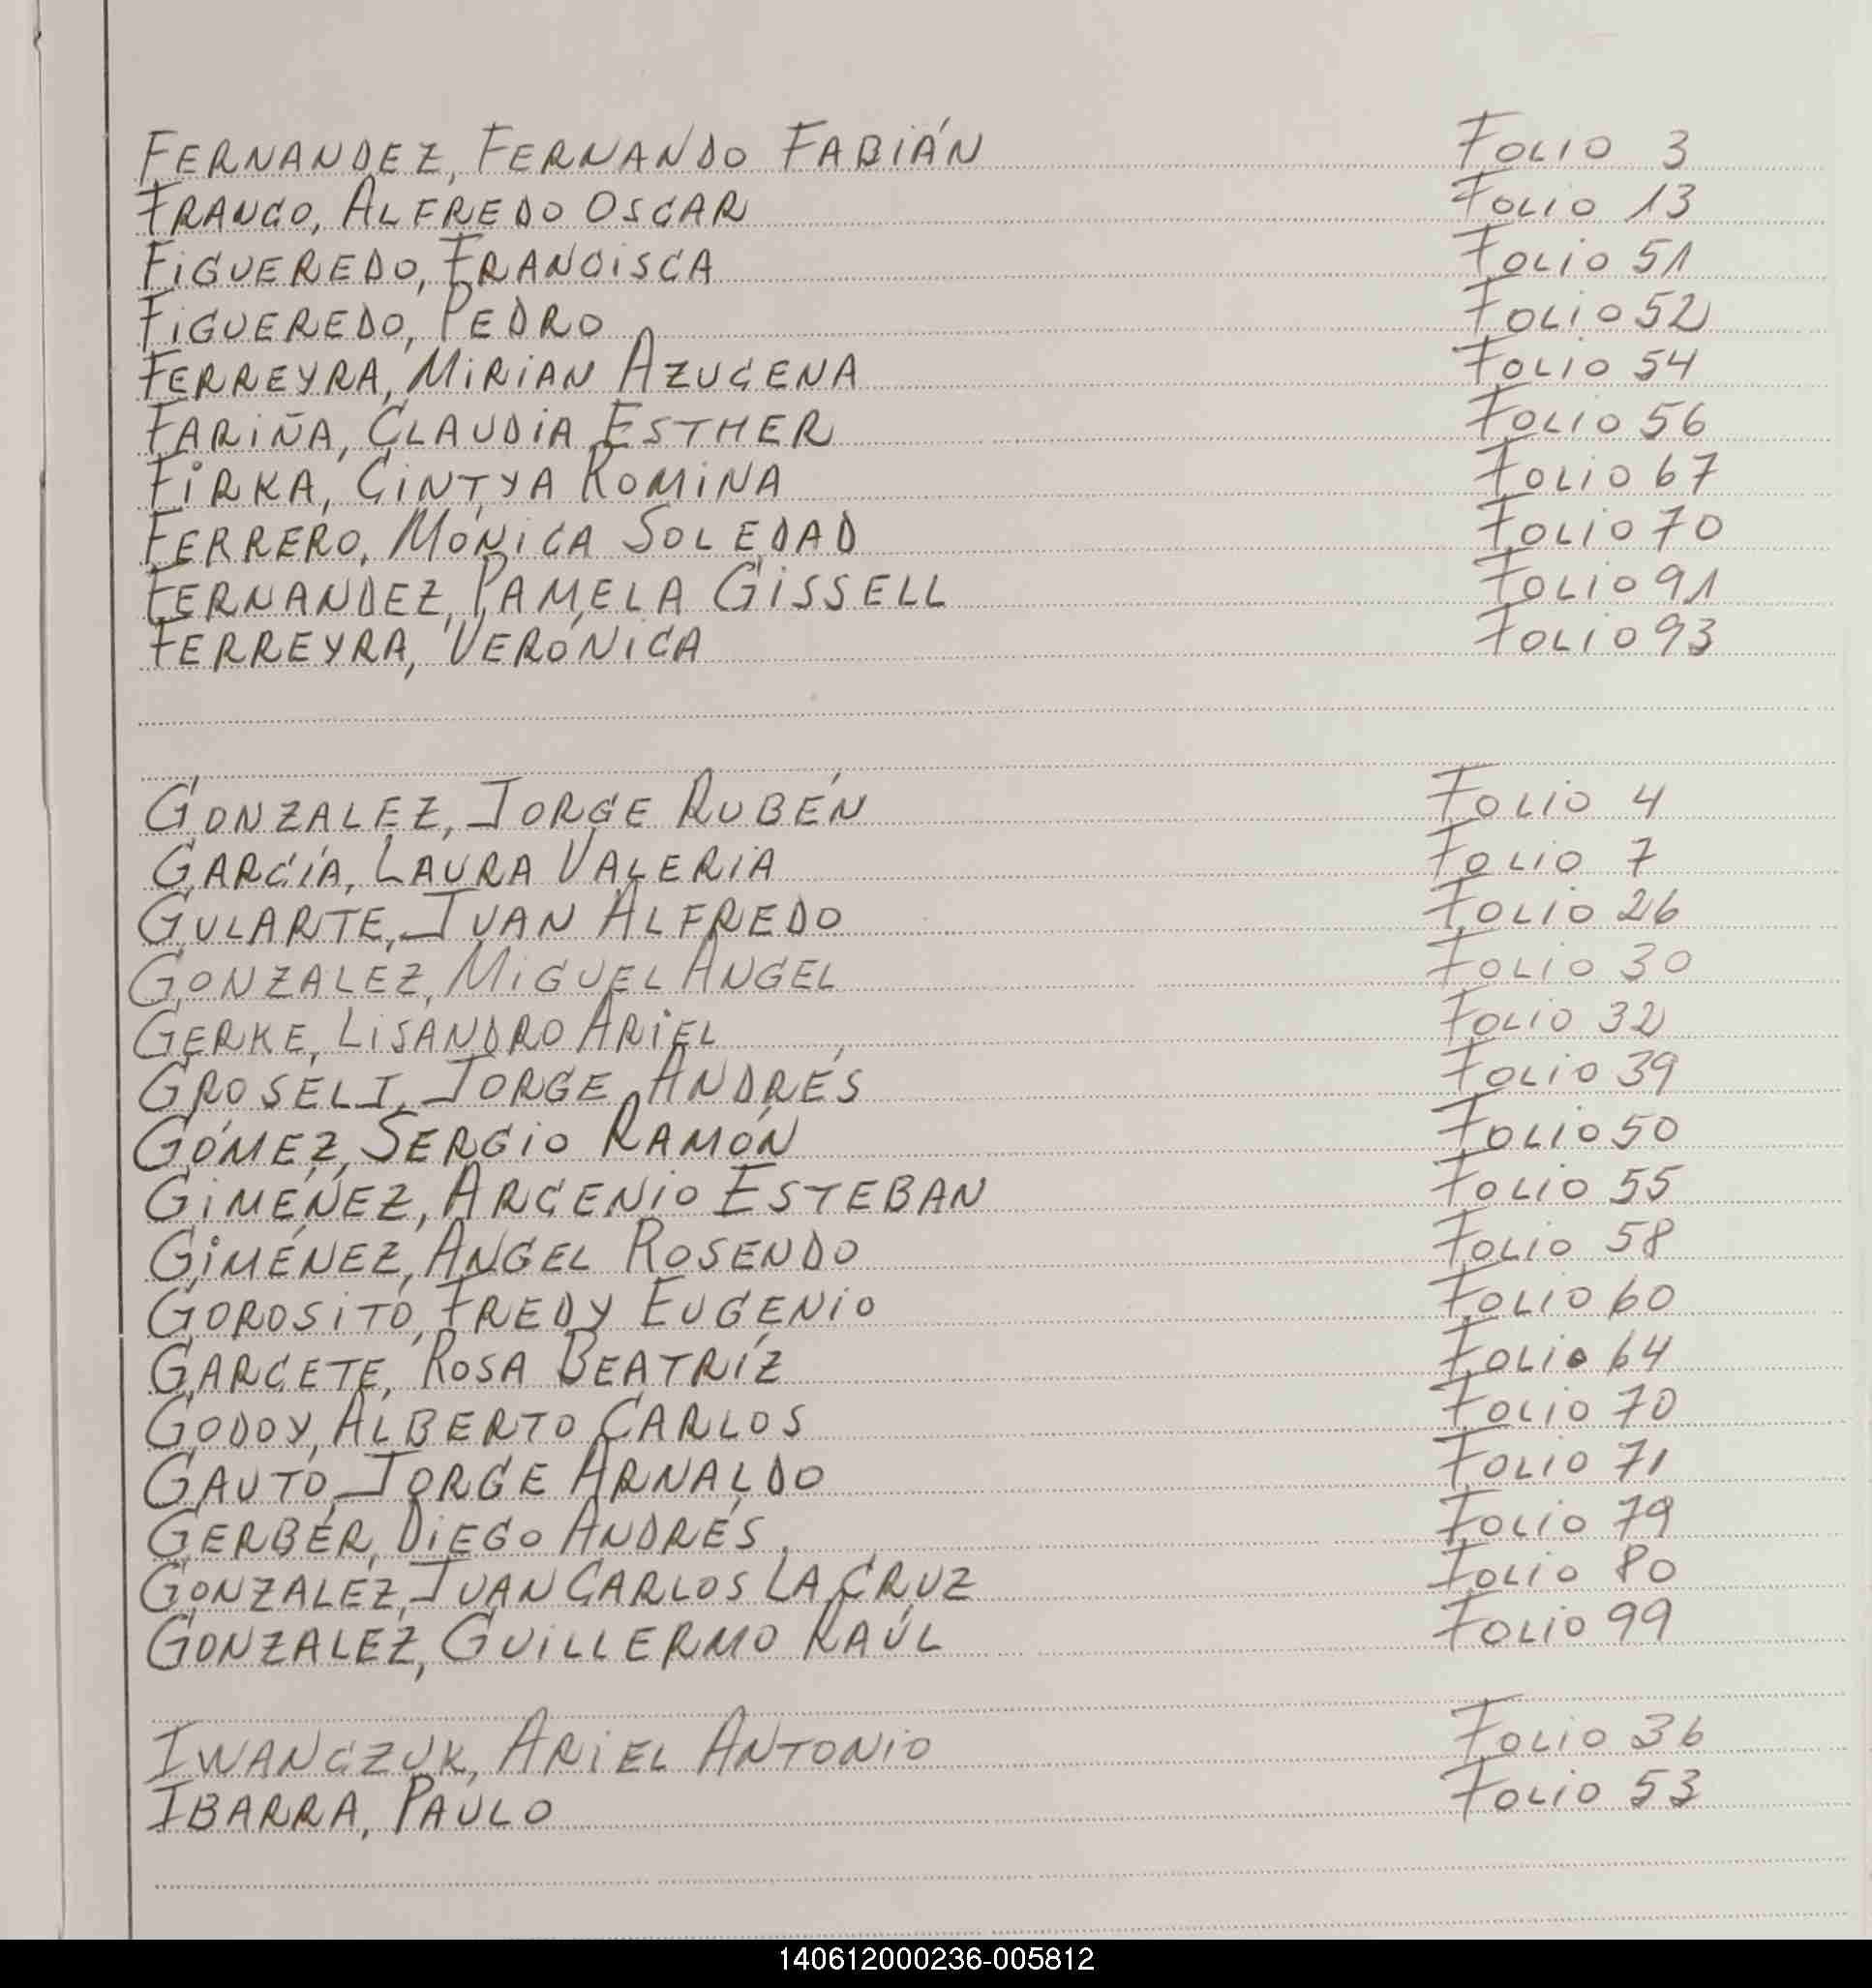 FERNANDEZ, FERNANDO FABIÁN Folio 3
FRANCO, ALFREDO OSCAR Folio 13
FIGUEREDO, FRANCISCA Folio 51
FIGUEREDO, PEDRO Folio 52
FERREYRA, MIRIAN AZUCENA Folio 54
FARIÑA, CLAUDIA ESTHER Folio 56
FIRKA, CINTYA ROMINA Folio 67
FERRERO, MÓNICA SOLEDAD Folio 70
FERNANDEZ, PAMELA GISSELL Folio 91
FERREYRA, VERÓNICA Folio 93
GONZALEZ, JORGE RUBÉN Folio 4
GARCÍA, LAURA VALERIA Folio 7
GULARTE, JUAN ALFREDO Folio 26
GONZALEZ, MIGUEL ANGEL Folio 30
GERKE, LISANDRO ARIEL Folio 32
GROSELJ, JORGE ANDRÉS Folio 39
GÓMEZ, SERGIO RAMÓN Folio 50
GIMÉNEZ, ARCENIO ESTEBAN Folio 55
GIMÉNEZ, ANGEL ROSENDO Folio 58
GOROSITO, FREDY EUGENIO Folio 60
GARCETE, ROSA BEATRÍZ Folio 64
GODOY, ALBERTO CARLOS Folio 70
GAUTO, JORGE ARNALDO Folio 71
GERBER, DIEGO ANDRÉS Folio 79
GONZALEZ, JUAN CARLOS LA CRUZ Folio 80
GONZALEZ, GUILLERMO RAÚL Folio 99
IWANCZUK, ARIEL ANTONIO Folio 36
IBARRA, PAULO Folio 53
140612000236-005812